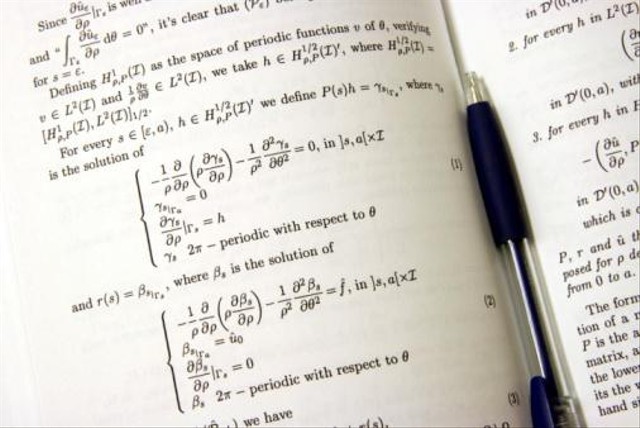 Since ∂û_ε/∂ρ |Γ_s is well
and "∫_Γs ∂û_ε/∂ρ dθ = 0", it's clear that (P_ε)
for s = ε.
Defining H^1_{ρ,P}(I) as the space of periodic functions v of θ, verifying
v ∈ L²(I) and 1/ρ ∂v/∂θ ∈ L²(I), we take h ∈ H^{1/2}_{ρ,P}(I)', where H^{1/2}_{ρ,P}(I) =
[H^1_{ρ,P}(I), L²(I)]_{1/2}.
For every s ∈ [ε, a), h ∈ H^{1/2}_{ρ,P}(I)' we define P(s)h = γ_{s|Γ_s}, where γ_s
is the solution of
−1/ρ ∂/∂ρ (ρ ∂γ_s/∂ρ) − 1/ρ² ∂²γ_s/∂θ² = 0, in ]s,a[×I
γ_{s|Γ_a} = 0
∂γ_s/∂ρ |Γ_s = h
γ_s 2π − periodic with respect to θ
(1)
and r(s) = β_{s|Γ_s}, where β_s is the solution of
−1/ρ ∂/∂ρ (ρ ∂β_s/∂ρ) − 1/ρ² ∂²β_s/∂θ² = f̂, in ]s,a[×I
β_{s|Γ_a} = û_0
∂β_s/∂ρ |Γ_s = 0
β_s 2π − periodic with respect to θ
(2)
) we have
(3)
r(s),
in D'(0,
2. for every h in L²(I)
in D'(0, a), wit
3. for every h in
−(∂û/∂ρ, P
in D'(0, a)
which is c
P, r and û th
posed for ρ de
from 0 to a.
The form
tion of a r
P is the a
matrix,
the lower
its the
hand si